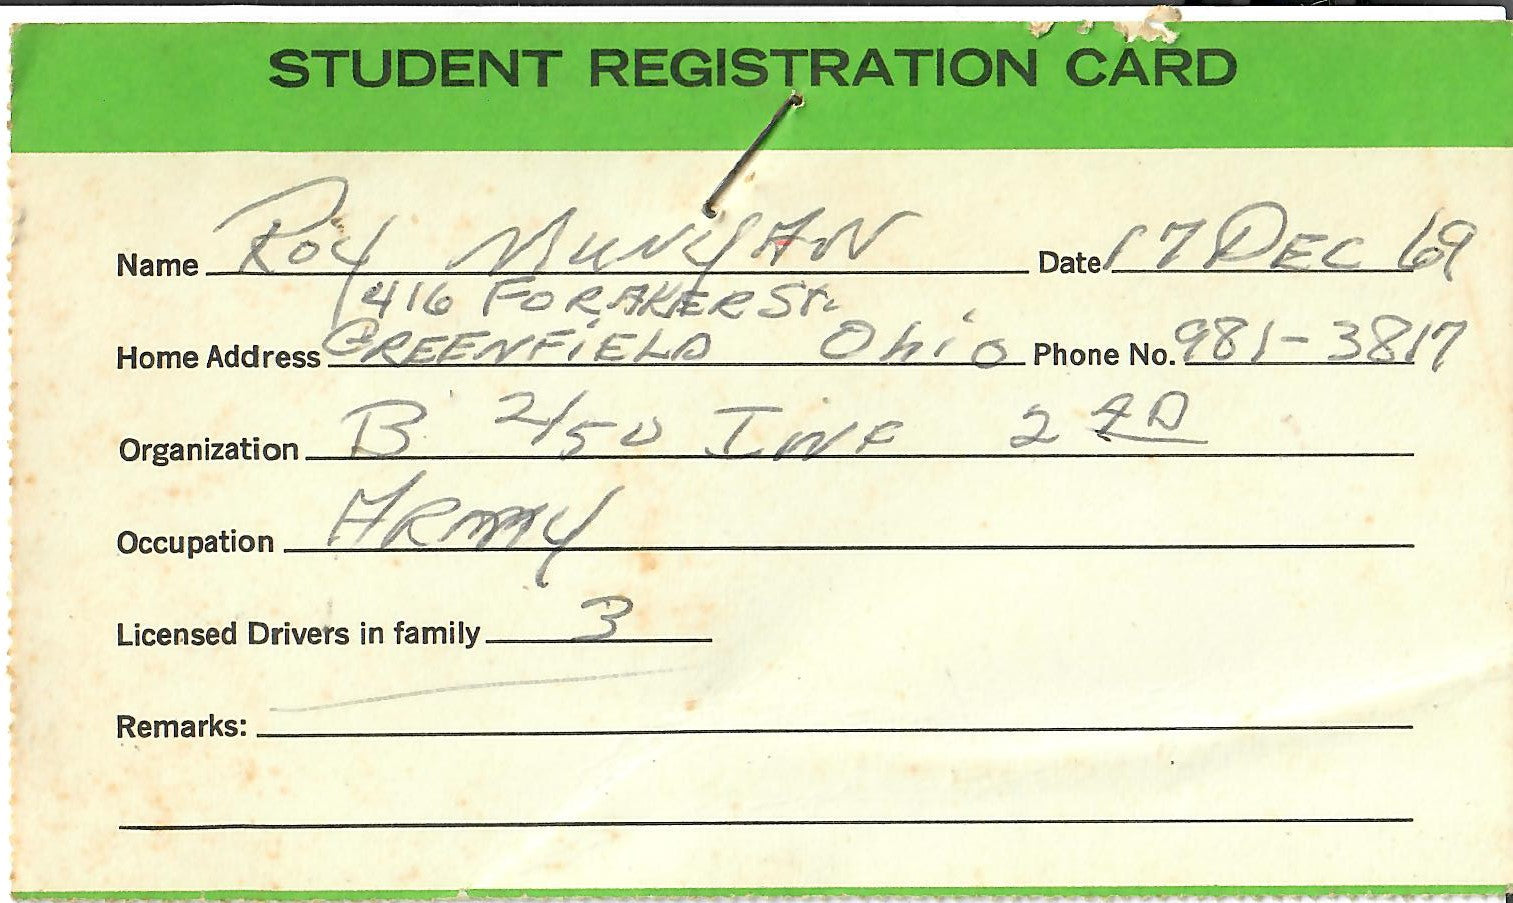 STUDENT REGISTRATION CARD
Name Roy MUNYAN Date 17 DEC 69
416 FORAKER St.
Home Address GREENFiELD Ohio Phone No. 981-3817
Organization B 2/50 INF 2 AD
Occupation ARmy
Licensed Drivers in family 3
Remarks: